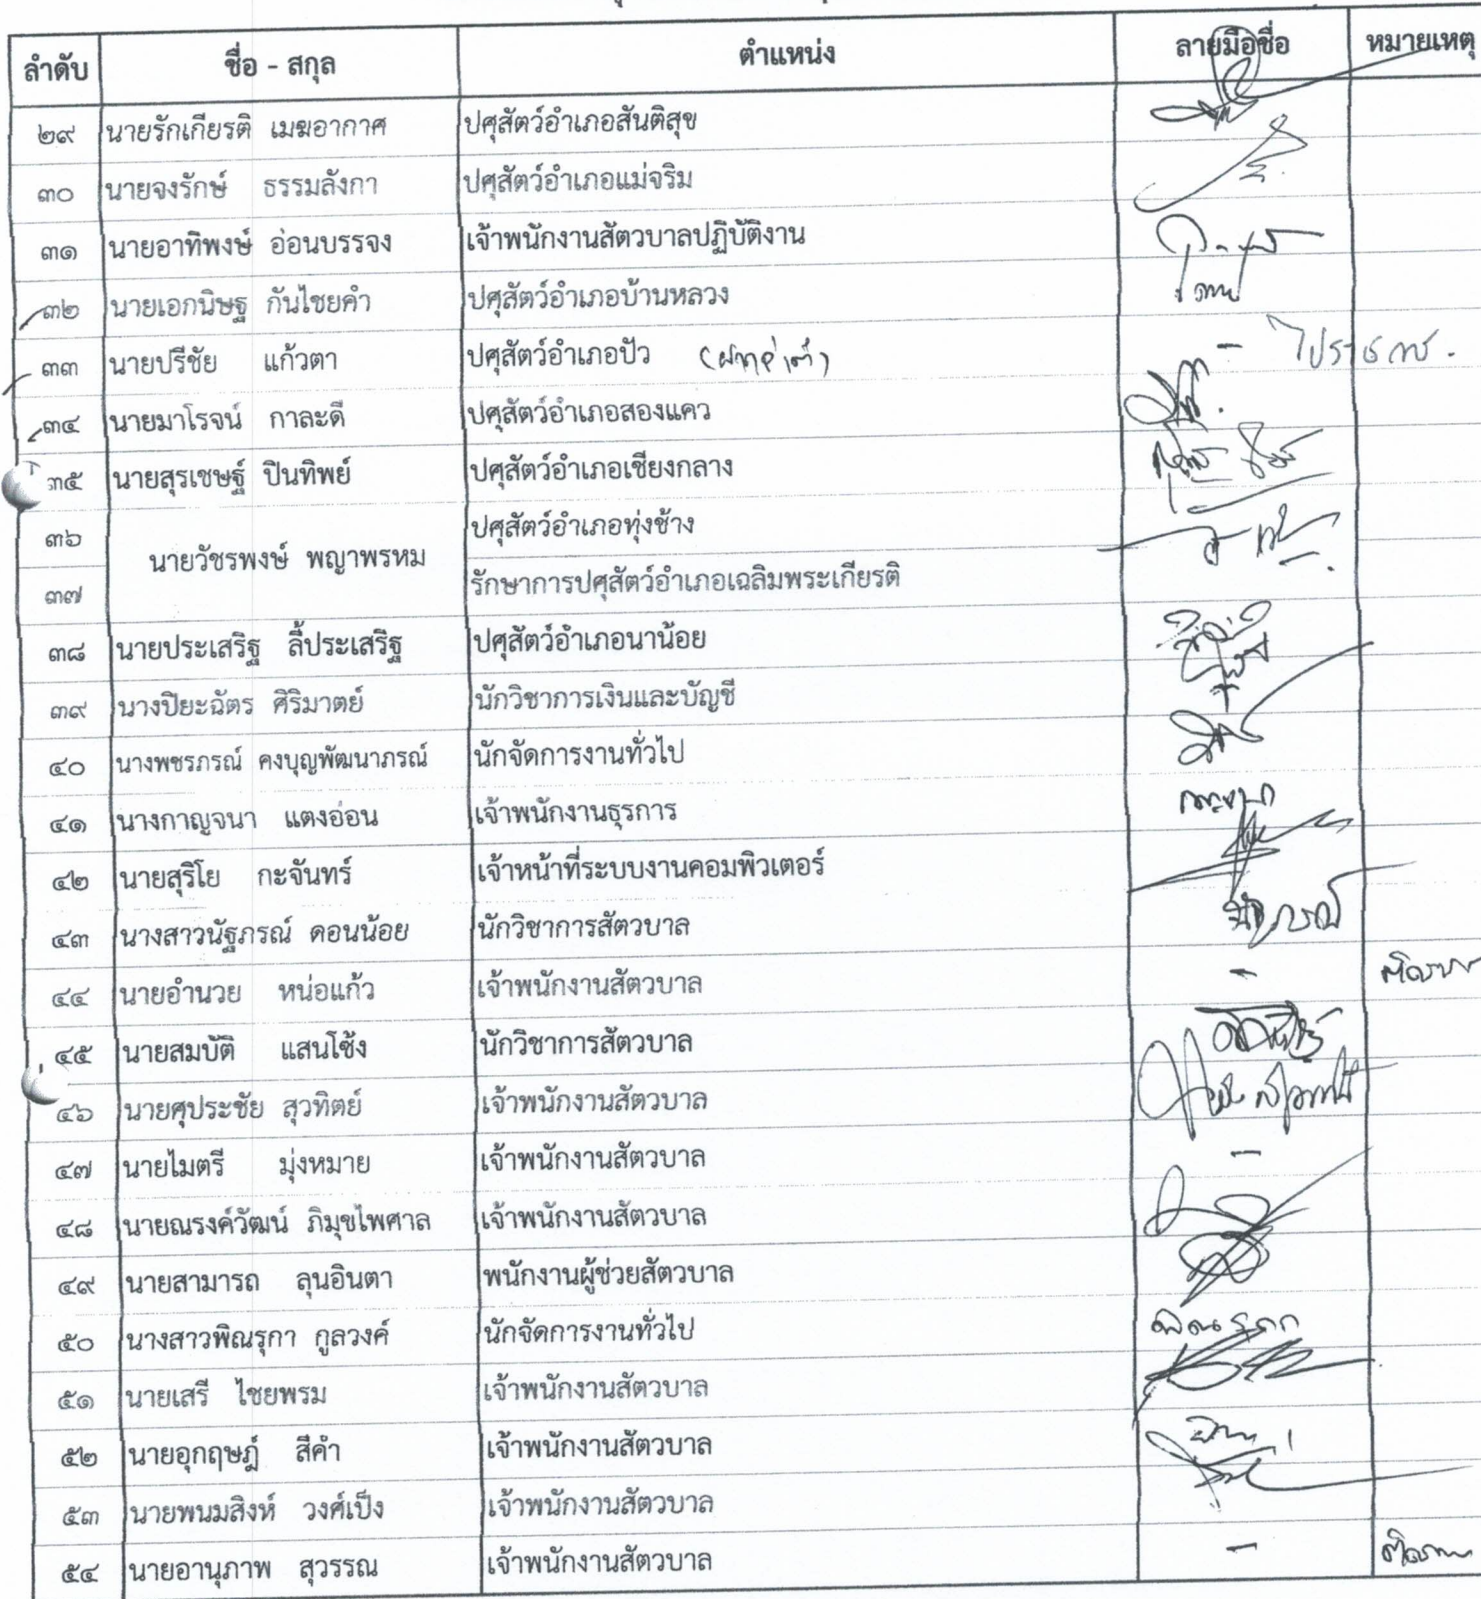 ลำดับ ชื่อ - สกุล ตำแหน่ง ลายมือชื่อ หมายเหตุ
๒๙ นายรักเกียรติ เมฆอากาศ ปศุสัตว์อำเภอสันติสุข
๓๐ นายจงรักษ์ ธรรมลังกา ปศุสัตว์อำเภอแม่จริม
๓๑ นายอาทิพงษ์ อ่อนบรรจง เจ้าพนักงานสัตวบาลปฏิบัติงาน
๓๒ นายเอกนิษฐ กันไชยคำ ปศุสัตว์อำเภอบ้านหลวง
๓๓ นายปรีชัย แก้วตา ปศุสัตว์อำเภอปัว - ไปราชการ.
๓๔ นายมาโรจน์ กาละดี ปศุสัตว์อำเภอสองแคว
๓๕ นายสุรเชษฐ์ ปินทิพย์ ปศุสัตว์อำเภอเชียงกลาง
๓๖ นายวัชรพงษ์ พญาพรหม ปศุสัตว์อำเภอทุ่งช้าง
๓๗ รักษาการปศุสัตว์อำเภอเฉลิมพระเกียรติ
๓๘ นายประเสริฐ ลี้ประเสริฐ ปศุสัตว์อำเภอนาน้อย
๓๙ นางปิยะฉัตร ศิริมาตย์ นักวิชาการเงินและบัญชี
๔๐ นางพชรภรณ์ คงบุญพัฒนาภรณ์ นักจัดการงานทั่วไป
๔๑ นางกาญจนา แตงอ่อน เจ้าพนักงานธุรการ
๔๒ นายสุริโย กะจันทร์ เจ้าหน้าที่ระบบงานคอมพิวเตอร์
๔๓ นางสาวนัฐภรณ์ ดอนน้อย นักวิชาการสัตวบาล นัฐภรณ์
๔๔ นายอำนวย หน่อแก้ว เจ้าพนักงานสัตวบาล -
๔๕ นายสมบัติ แสนโซ้ง นักวิชาการสัตวบาล
๔๖ นายศุประชัย สุวทิตย์ เจ้าพนักงานสัตวบาล
๔๗ นายไมตรี มุ่งหมาย เจ้าพนักงานสัตวบาล -
๔๘ นายณรงค์วัฒน์ ภิมุขไพศาล เจ้าพนักงานสัตวบาล
๔๙ นายสามารถ ลุนอินตา พนักงานผู้ช่วยสัตวบาล
๕๐ นางสาวพิณรุกา กูลวงค์ นักจัดการงานทั่วไป พิณรุกา
๕๑ นายเสรี ไชยพรม เจ้าพนักงานสัตวบาล
๕๒ นายอุกฤษฎ์ สีคำ เจ้าพนักงานสัตวบาล
๕๓ นายพนมสิงห์ วงศ์เป็ง เจ้าพนักงานสัตวบาล
๕๔ นายอานุภาพ สุวรรณ เจ้าพนักงานสัตวบาล -